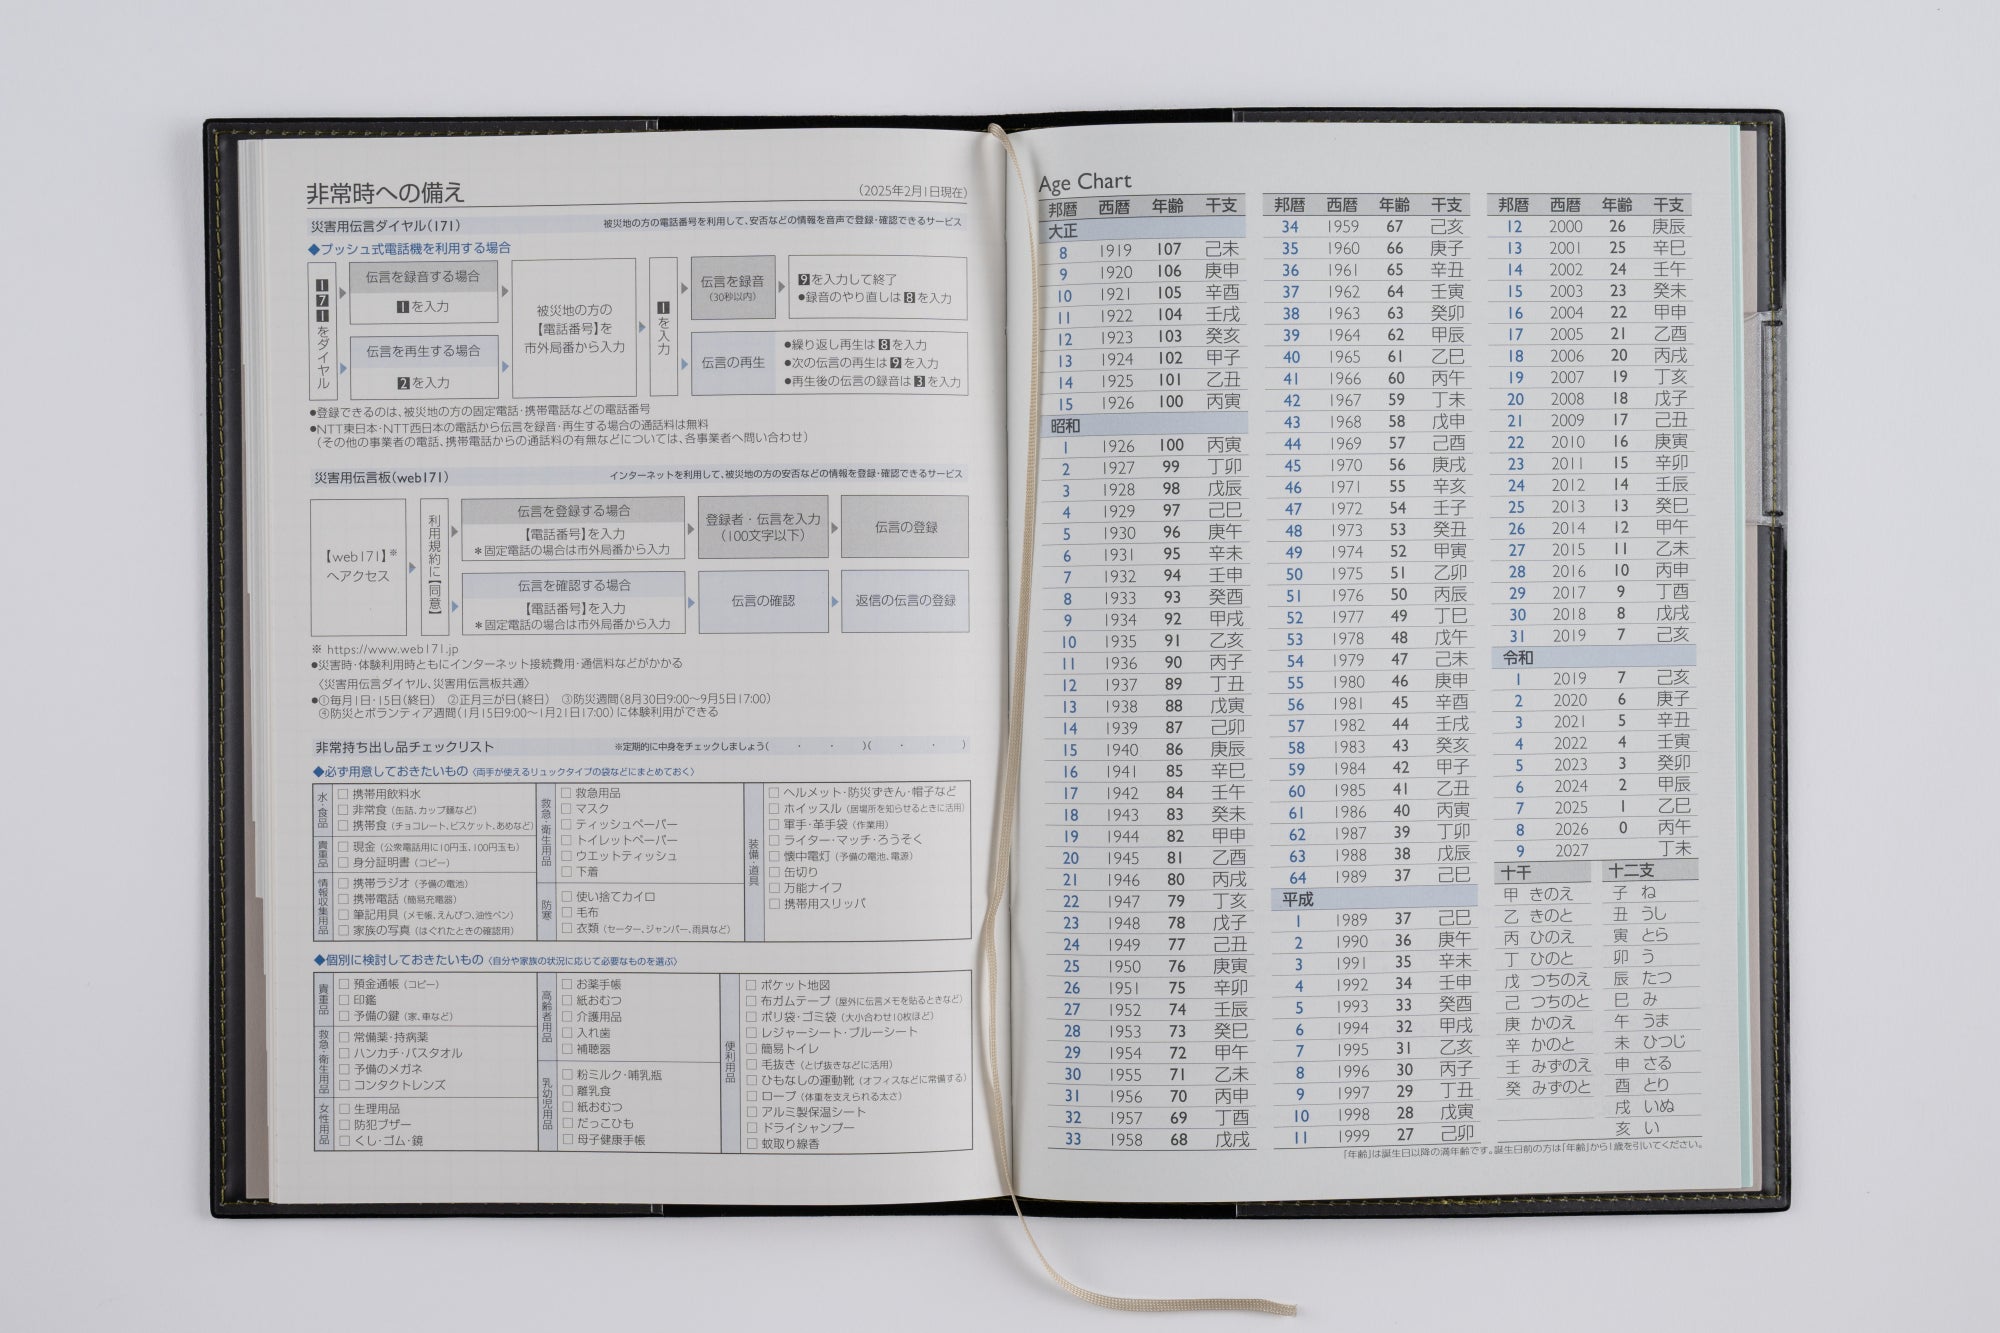 非常時への備え
（2025年2月1日現在）
災害用伝言ダイヤル（171）
被災地の方の電話番号を利用して、安否などの情報を音声で登録・確認できるサービス
◆プッシュ式電話機を利用する場合
171をダイヤル
伝言を録音する場合
1を入力
伝言を再生する場合
2を入力
被災地の方の
【電話番号】を
市外局番から入力
1を入力
伝言を録音
（30秒以内）
9を入力して終了
●録音のやり直しは8を入力
伝言の再生
●繰り返し再生は8を入力
●次の伝言の再生は9を入力
●再生後の伝言の録音は3を入力
●登録できるのは、被災地の方の固定電話・携帯電話などの電話番号
●NTT東日本・NTT西日本の電話から伝言を録音・再生する場合の通話料は無料
（その他の事業者の電話、携帯電話からの通話料の有無などについては、各事業者へ問い合わせ）
災害用伝言板（web171）
インターネットを利用して、被災地の方の安否などの情報を登録・確認できるサービス
【web171】※
へアクセス
利用規約に【同意】
伝言を登録する場合
【電話番号】を入力
＊固定電話の場合は市外局番から入力
登録者・伝言を入力
（100文字以下）
伝言の登録
伝言を確認する場合
【電話番号】を入力
＊固定電話の場合は市外局番から入力
伝言の確認
返信の伝言の登録
※ https://www.web171.jp
●災害時・体験利用時ともにインターネット接続費用・通信料などがかかる
〈災害用伝言ダイヤル、災害用伝言板共通〉
●①毎月1日・15日（終日） ②正月三が日（終日） ③防災週間（8月30日9:00～9月5日17:00）
④防災とボランティア週間（1月15日9:00～1月21日17:00）に体験利用ができる
非常持ち出し品チェックリスト
※定期的に中身をチェックしましょう（ ・ ・ ）（ ・ ・ ）
◆必ず用意しておきたいもの〈両手が使えるリュックタイプの袋などにまとめておく〉
水・食品
□ 携帯用飲料水
□ 非常食（缶詰、カップ麺など）
□ 携帯食（チョコレート、ビスケット、あめなど）
貴重品
□ 現金（公衆電話用に10円玉、100円玉も）
□ 身分証明書（コピー）
情報収集用品
□ 携帯ラジオ（予備の電池）
□ 携帯電話（簡易充電器）
□ 筆記用具（メモ帳、えんぴつ、油性ペン）
□ 家族の写真（はぐれたときの確認用）
救急・衛生用品
□ 救急用品
□ マスク
□ ティッシュペーパー
□ トイレットペーパー
□ ウエットティッシュ
□ 下着
防寒
□ 使い捨てカイロ
□ 毛布
□ 衣類（セーター、ジャンパー、雨具など）
装備・道具
□ ヘルメット・防災ずきん・帽子など
□ ホイッスル（居場所を知らせるときに活用）
□ 軍手・革手袋（作業用）
□ ライター・マッチ・ろうそく
□ 懐中電灯（予備の電池、電源）
□ 缶切り
□ 万能ナイフ
□ 携帯用スリッパ
◆個別に検討しておきたいもの〈自分や家族の状況に応じて必要なものを選ぶ〉
貴重品
□ 預金通帳（コピー）
□ 印鑑
□ 予備の鍵（家、車など）
救急・衛生用品
□ 常備薬・持病薬
□ ハンカチ・バスタオル
□ 予備のメガネ
□ コンタクトレンズ
女性用品
□ 生理用品
□ 防犯ブザー
□ くし・ゴム・鏡
高齢者用品
□ お薬手帳
□ 紙おむつ
□ 介護用品
□ 入れ歯
□ 補聴器
乳幼児用品
□ 粉ミルク・哺乳瓶
□ 離乳食
□ 紙おむつ
□ だっこひも
□ 母子健康手帳
便利用品
□ ポケット地図
□ 布ガムテープ（屋外に伝言メモを貼るときなど）
□ ポリ袋・ゴミ袋（大小合わせ10枚ほど）
□ レジャーシート・ブルーシート
□ 簡易トイレ
□ 毛抜き（とげ抜きなどに活用）
□ ひもなしの運動靴（オフィスなどに常備する）
□ ロープ（体重を支えられる太さ）
□ アルミ製保温シート
□ ドライシャンプー
□ 蚊取り線香
Age Chart
邦暦 西暦 年齢 干支
大正
8 1919 107 己未
9 1920 106 庚申
10 1921 105 辛酉
11 1922 104 壬戌
12 1923 103 癸亥
13 1924 102 甲子
14 1925 101 乙丑
15 1926 100 丙寅
昭和
1 1926 100 丙寅
2 1927 99 丁卯
3 1928 98 戊辰
4 1929 97 己巳
5 1930 96 庚午
6 1931 95 辛未
7 1932 94 壬申
8 1933 93 癸酉
9 1934 92 甲戌
10 1935 91 乙亥
11 1936 90 丙子
12 1937 89 丁丑
13 1938 88 戊寅
14 1939 87 己卯
15 1940 86 庚辰
16 1941 85 辛巳
17 1942 84 壬午
18 1943 83 癸未
19 1944 82 甲申
20 1945 81 乙酉
21 1946 80 丙戌
22 1947 79 丁亥
23 1948 78 戊子
24 1949 77 己丑
25 1950 76 庚寅
26 1951 75 辛卯
27 1952 74 壬辰
28 1953 73 癸巳
29 1954 72 甲午
30 1955 71 乙未
31 1956 70 丙申
32 1957 69 丁酉
33 1958 68 戊戌
邦暦 西暦 年齢 干支
34 1959 67 己亥
35 1960 66 庚子
36 1961 65 辛丑
37 1962 64 壬寅
38 1963 63 癸卯
39 1964 62 甲辰
40 1965 61 乙巳
41 1966 60 丙午
42 1967 59 丁未
43 1968 58 戊申
44 1969 57 己酉
45 1970 56 庚戌
46 1971 55 辛亥
47 1972 54 壬子
48 1973 53 癸丑
49 1974 52 甲寅
50 1975 51 乙卯
51 1976 50 丙辰
52 1977 49 丁巳
53 1978 48 戊午
54 1979 47 己未
55 1980 46 庚申
56 1981 45 辛酉
57 1982 44 壬戌
58 1983 43 癸亥
59 1984 42 甲子
60 1985 41 乙丑
61 1986 40 丙寅
62 1987 39 丁卯
63 1988 38 戊辰
64 1989 37 己巳
平成
1 1989 37 己巳
2 1990 36 庚午
3 1991 35 辛未
4 1992 34 壬申
5 1993 33 癸酉
6 1994 32 甲戌
7 1995 31 乙亥
8 1996 30 丙子
9 1997 29 丁丑
10 1998 28 戊寅
11 1999 27 己卯
邦暦 西暦 年齢 干支
12 2000 26 庚辰
13 2001 25 辛巳
14 2002 24 壬午
15 2003 23 癸未
16 2004 22 甲申
17 2005 21 乙酉
18 2006 20 丙戌
19 2007 19 丁亥
20 2008 18 戊子
21 2009 17 己丑
22 2010 16 庚寅
23 2011 15 辛卯
24 2012 14 壬辰
25 2013 13 癸巳
26 2014 12 甲午
27 2015 11 乙未
28 2016 10 丙申
29 2017 9 丁酉
30 2018 8 戊戌
31 2019 7 己亥
令和
1 2019 7 己亥
2 2020 6 庚子
3 2021 5 辛丑
4 2022 4 壬寅
5 2023 3 癸卯
6 2024 2 甲辰
7 2025 1 乙巳
8 2026 0 丙午
9 2027 丁未
十干
甲 きのえ
乙 きのと
丙 ひのえ
丁 ひのと
戊 つちのえ
己 つちのと
庚 かのえ
辛 かのと
壬 みずのえ
癸 みずのと
十二支
子 ね
丑 うし
寅 とら
卯 う
辰 たつ
巳 み
午 うま
未 ひつじ
申 さる
酉 とり
戌 いぬ
亥 い
「年齢」は誕生日以降の満年齢です。誕生日前の方は「年齢」から1歳を引いてください。